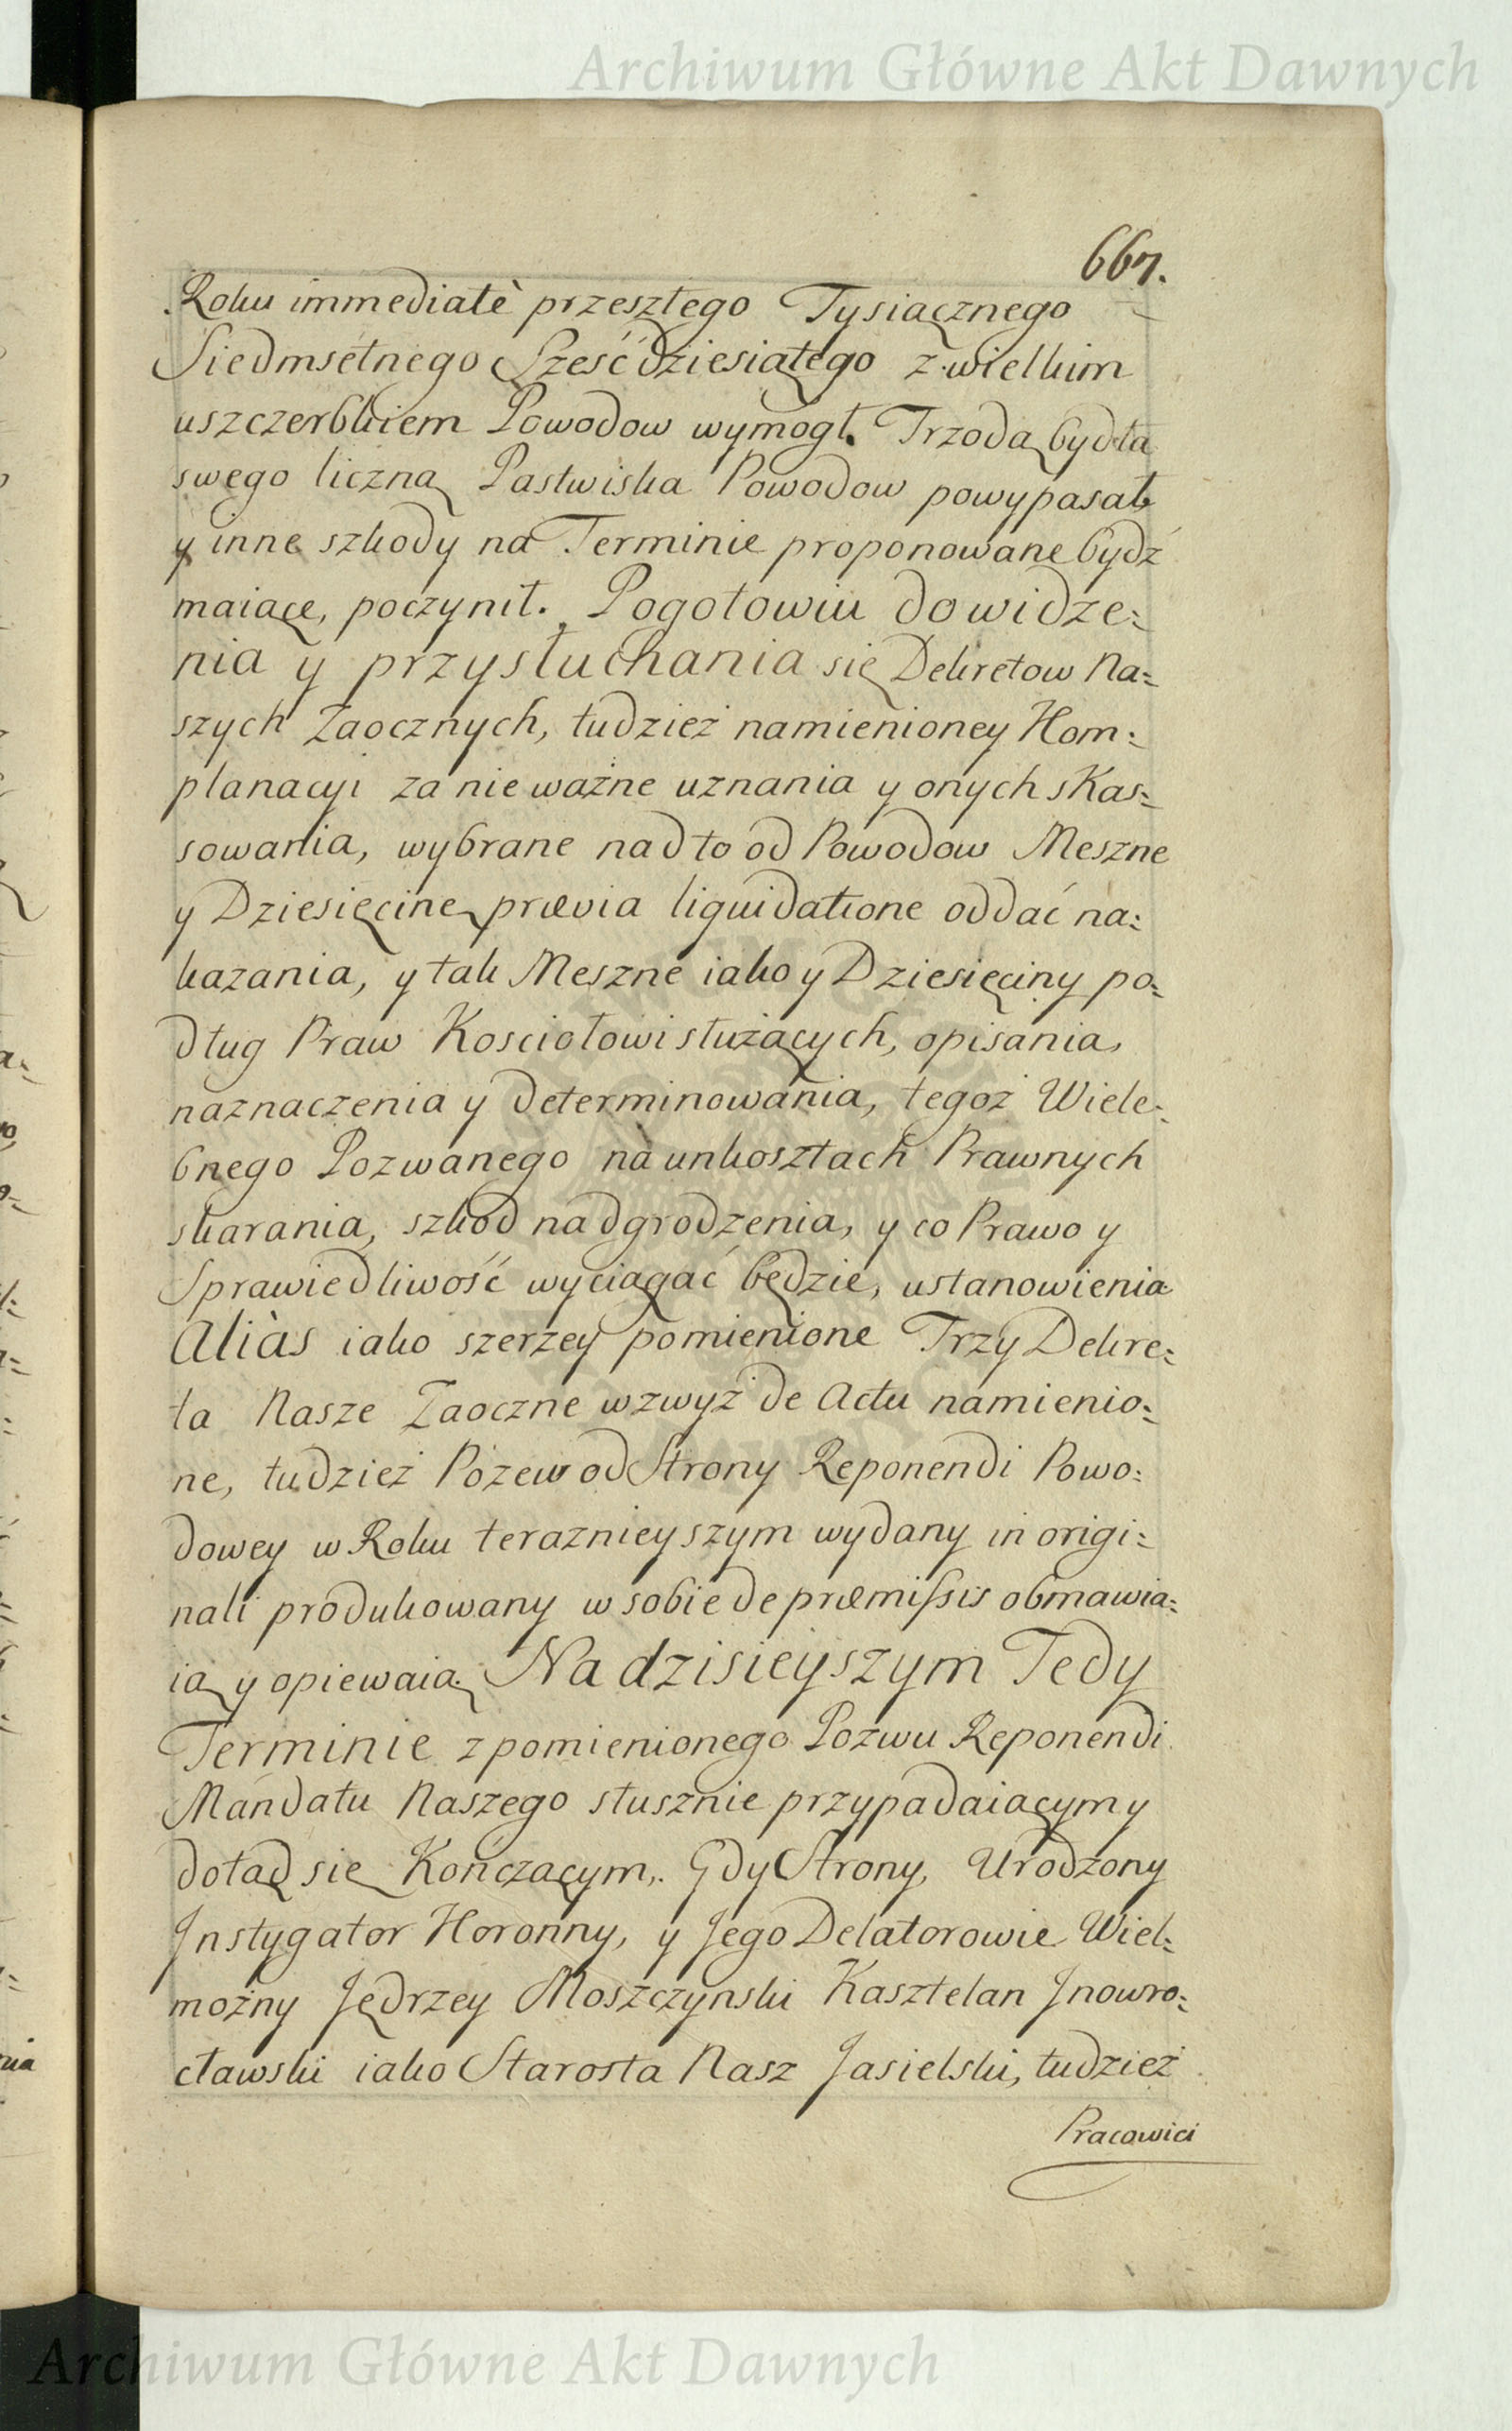 Archiwum Główne Akt Dawnych
667.
Roku immediatè przeszłego Tysiącznego
Siedmsetnego Sześćdziesiątego z wielkim
uszczerbkiem Powodow wymogł. Trzodą bydła
swego liczną Pastwiska Powodow powypasał
y inne szkody na Terminie proponowane bydź
maiące, poczynił. Pogotowiu do widze=
nia y przysłuchania się Dekretow Na=
szych Zaocznych, tudzież namienioney Kom=
planacyi za nie ważne uznania y onych skas=
sowania, wybrane nad to od Powodow Meszne
y Dziesięcinę prævia liquidatione oddać na=
kazania, y tak Meszne iako y Dziesięciny po=
dług Praw Kosciołowi służących, opisania,
naznaczenia y determinowania, tegoż Wiele=
bnego Pozwanego nà unkosztach Prawnych
skarania, szkod nadgrodzenia, y co Prawo y
Sprawiedliwość wyciągać będzie, ustanowienia
Aliàs iako szerzey pomienione Trzy Dekre=
ta Nasze Zaoczne wzwyż de Actu namienio=
ne, tudzież Pozew od Strony Reponendi Powo=
dowey w Roku teraznieyszym wydany in origi=
nali produkowany w sobie de præmissis obmawia=
ią y opiewaią. Na dzisieyszym Tedy
Terminie z pomienionego Pozwu Reponendi
Mandatu Naszego słusznie przypadaiącym y
dotąd się Kończącym, Gdy Strony, Urodzony
Instygator Koronny, y Jego Delatorowie Wiel=
możny Jędrzey Moszczynski Kasztelan Jnowro=
cławski iako Starosta Nasz Jasielski, tudzież
Pracowici
Archiwum Główne Akt Dawnych